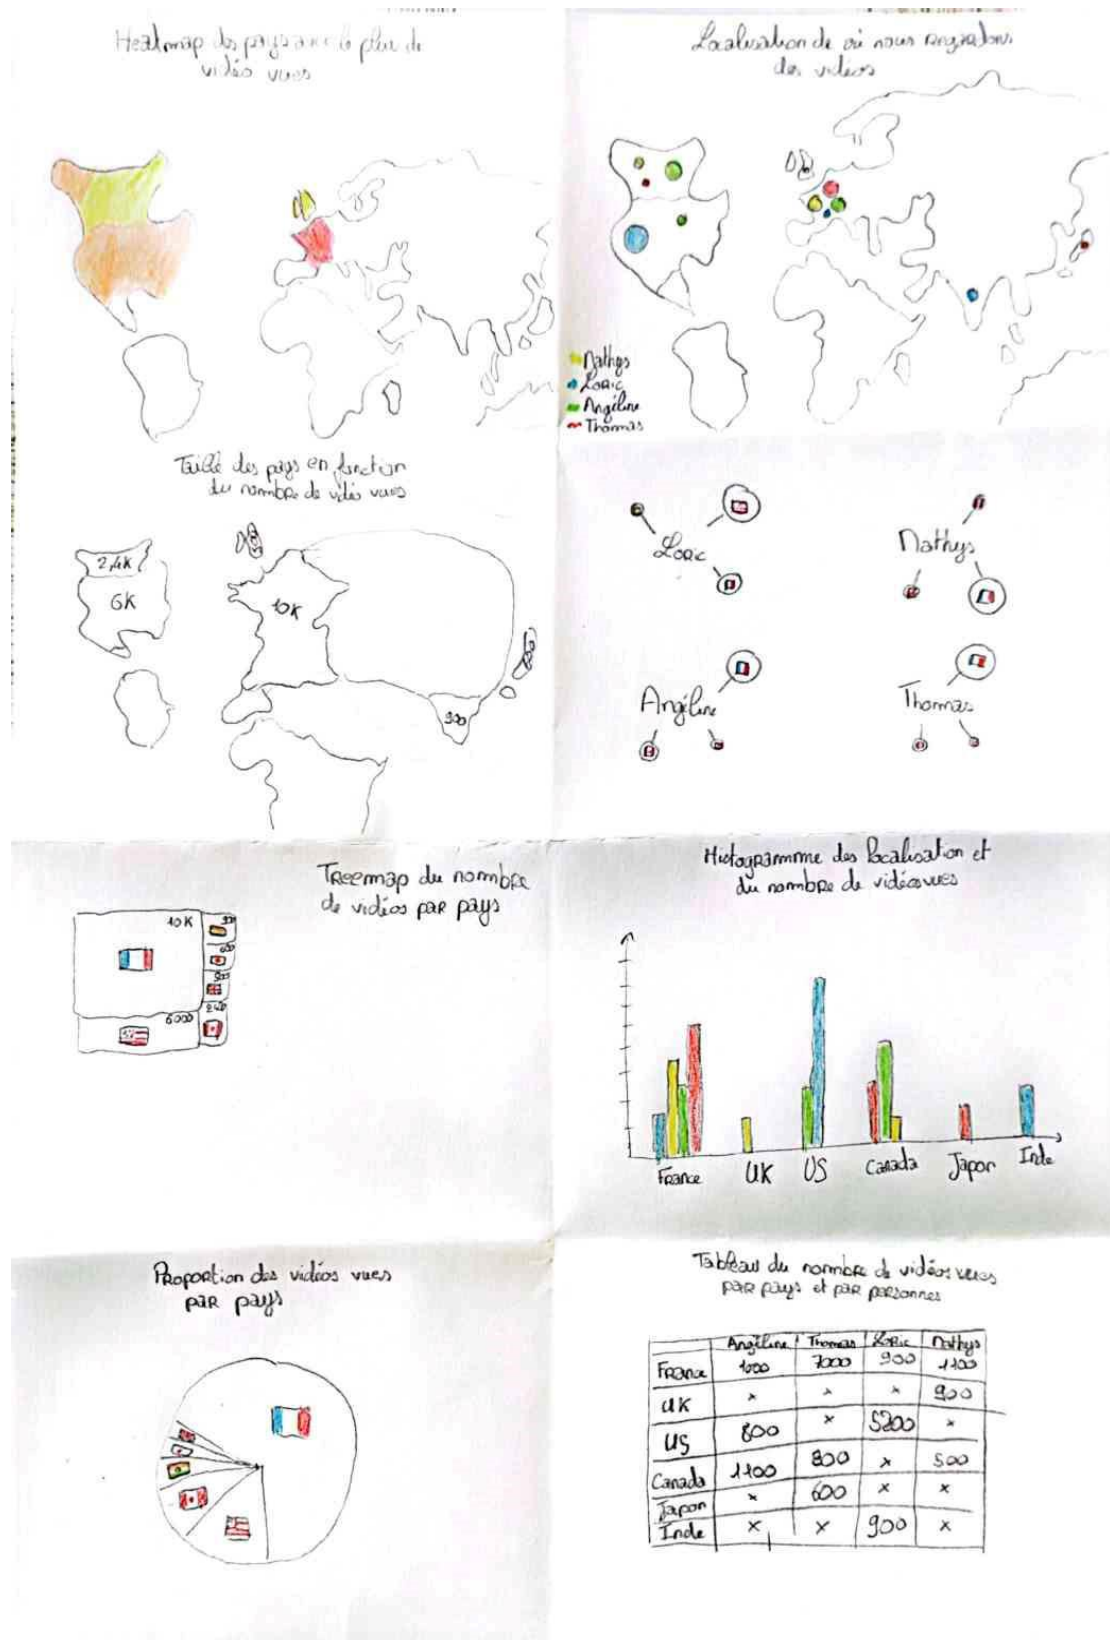 Heatmap des pays avec le plus de
vidéo vues
Localisation de où nous regardons
des vidéos
Nathys
Loric
Angéline
Thomas
Taille des pays en fonction
du nombre de vidéo vues
2,4K
6K
10K
900
Loric
Nathys
Angéline
Thomas
Treemap du nombre
de vidéos par pays
10K
900
600
900
6000
2400
Histogramme des localisation et
du nombre de vidéos vues
France
UK
US
Canada
Japon
Inde
Proportion des vidéos vues
par pays
Tableau du nombre de vidéos vues
par pays et par personnes
Angéline Thomas Loric Nathys
France 1000 7000 900 1100
UK x x x 900
US 800 x 5200 x
Canada 1100 800 x 500
Japon x 600 x x
Inde x x 900 x